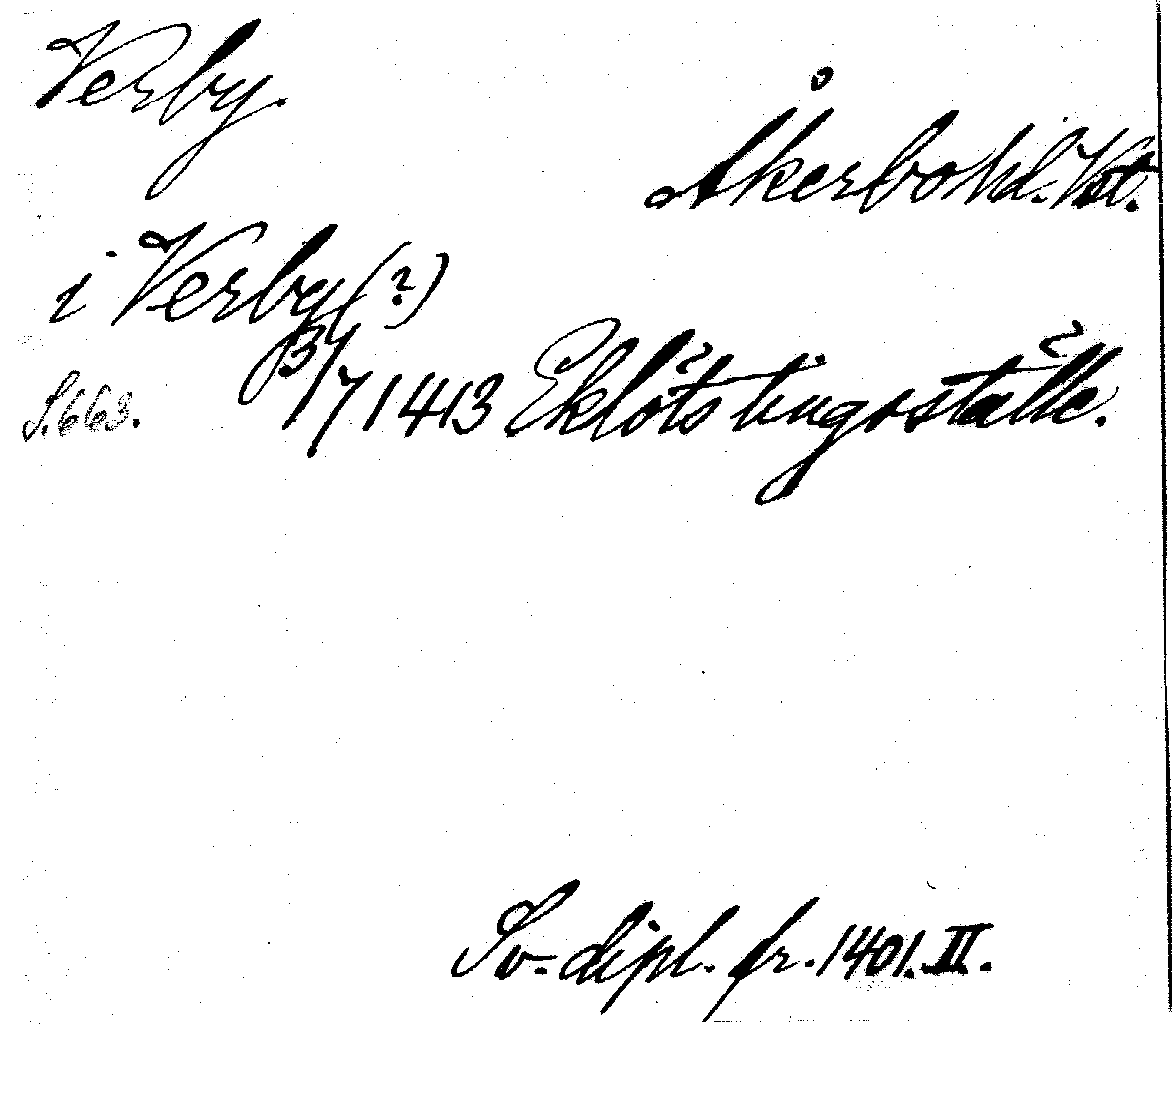 Verby.
Åkerbo hd. Vst.
i Verby (?)
S. 663. 3/7 1413 Eklöts tingsställe.
Sv. dipl. fr. 1401. II.